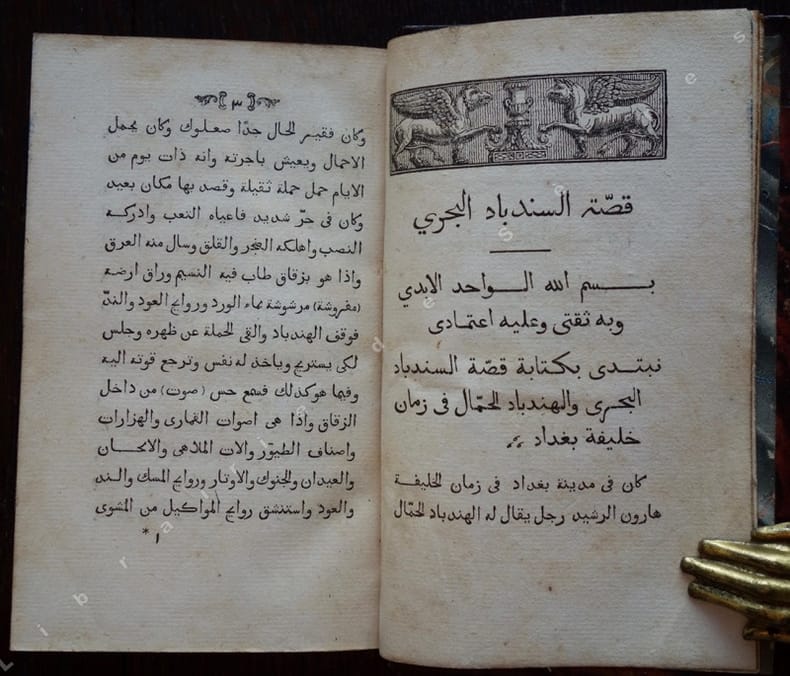 قصّة السندباد البحري
بسم الله الواحد الابدي
وبه ثقتى وعليه اعتمادى
نبتدى بكتابة قصّة السندباد
البحرى والهندباد الحمّال فى زمان
خليفة بغداد
كان فى مدينة بغداد فى زمان الخليفة
هارون الرشيد رجل يقال له الهندباد الحمّال
٣
وكان فقير الحال جدًا صعلوك وكان يحمل
الاحمال ويعيش باجرته وانه ذات يوم من
الايام حمل حملة ثقيلة وقصد بها مكان بعيد
وكان فى حرّ شديد فاعياه التعب وادركه
النصب واهلكه الضجر والقلق وسال منه العرق
واذا هو بزقاق طاب فيه النسيم وراق ارضه
(مفروشة) مرشوشة بماء الورد وروايح العود والندّ
فوقف الهندباد والقى الحملة عن ظهره وجلس
لكى يستريح وياخذ له نفس وترجع قوته اليه
وفيما هو كذلك فسمع حس (صوت) من داخل
الزقاق واذا هى اصوات القمارى والهزارات
واصناف الطيور والات الملاهى والالحان
والعيدان والجنوك والاوتار وروايح المسك والند
والعود واستنشق روايح المواكيل من المشوى
١ *
Librairie des